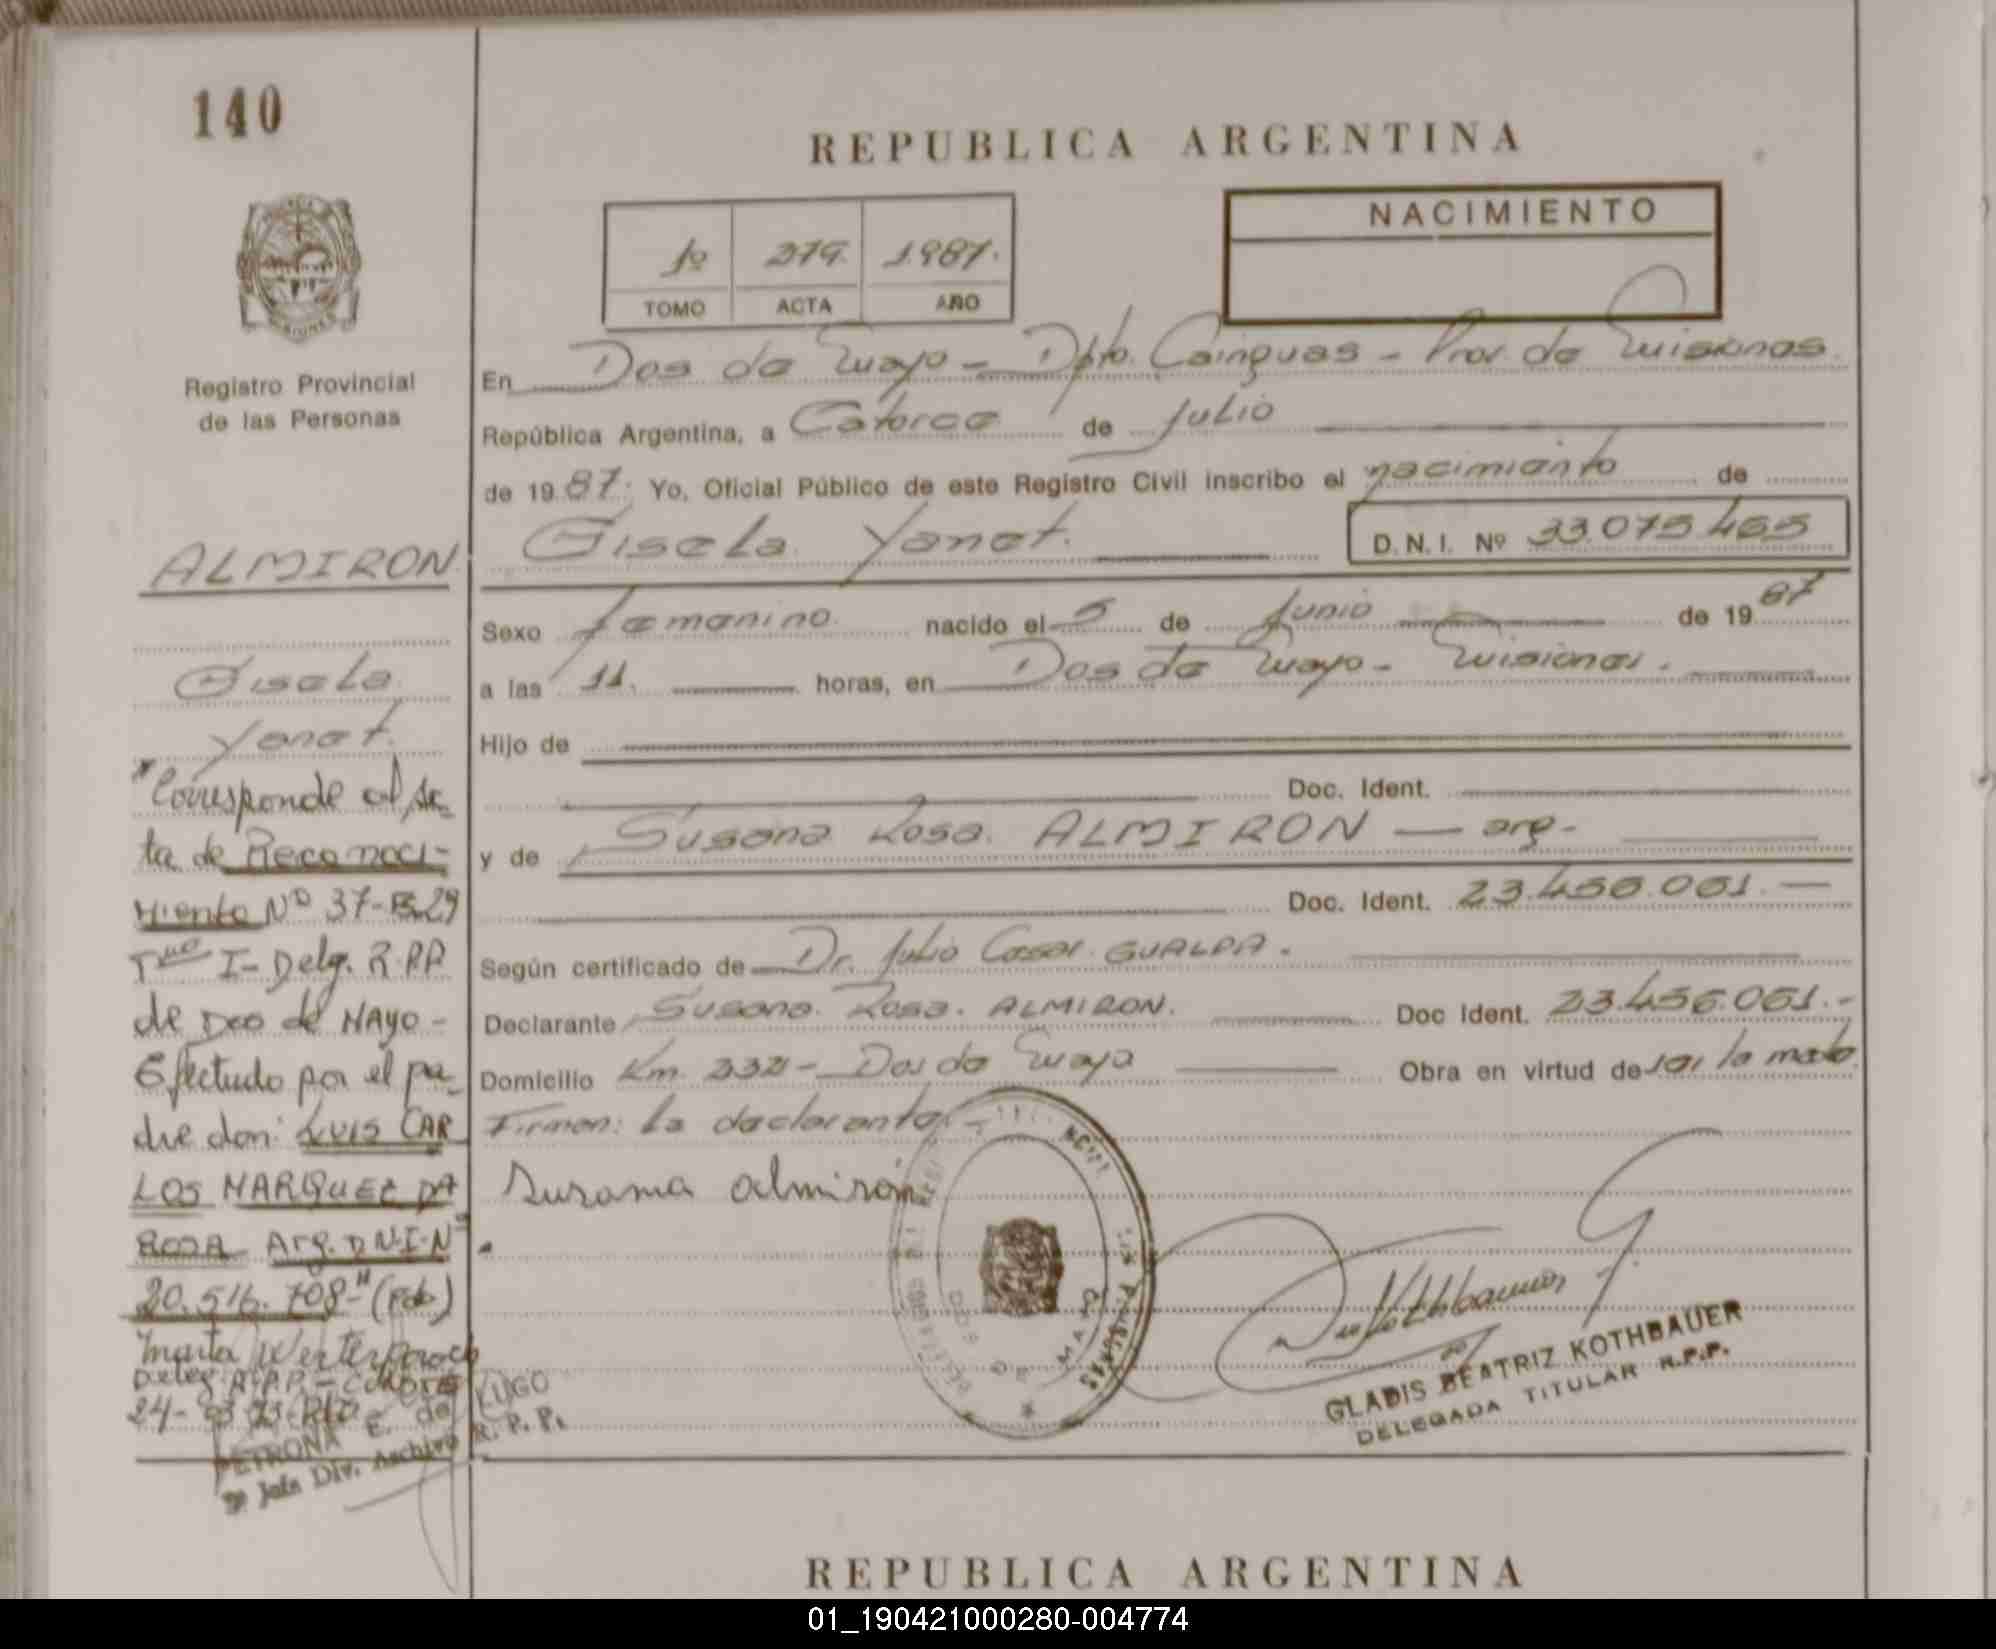 140
REPUBLICA ARGENTINA
NACIMIENTO
1º 279. 1.987.
TOMO ACTA AÑO
MISIONES
Registro Provincial
de las Personas
En Dos de Mayo - Dpto. Cainguas - Prov. de Misiones.
República Argentina, a Catorce de Julio
de 19 87. Yo, Oficial Público de este Registro Civil inscribo el nacimiento de
ALMIRON. Gisela Yanet. D.N.I. Nº 33.075.465
Sexo femenino. nacido el 5 de Junio de 19 87
a las 11. horas, en Dos de Mayo - Misiones.
Hijo de
Doc. Ident.
y de Susana Rosa. ALMIRON - arg-
Doc. Ident. 23.456.061.-
Según certificado de Dr. Julio Cesar GUALDA.
Declarante Susana Rosa. ALMIRON. Doc Ident. 23.456.061.-
Domicilio Km 232 - Dos de Mayo Obra en virtud de la
Firman: La declarante -
Susana almiron
Gisela
Yanet.
"Corresponde al Ac-
ta de Reconoci-
miento Nº 37-B.29
Tmo I- Delg. R.P.P.
de Dos de MAYO -
Efectudo por el pa-
dre don: LUIS CAR
LOS MARQUEZ DA
ROSA Arg. D.N.I.Nº
20.516.708-" (pdo)
Marta
24-
PETRONA E. de LUGO
Jefe Div. Archivo R.P.P.
DOS DE MAYO
GLADIS BEATRIZ KOTHBAUER
DELEGADA TITULAR R.P.P.
REPUBLICA ARGENTINA
01_190421000280-004774